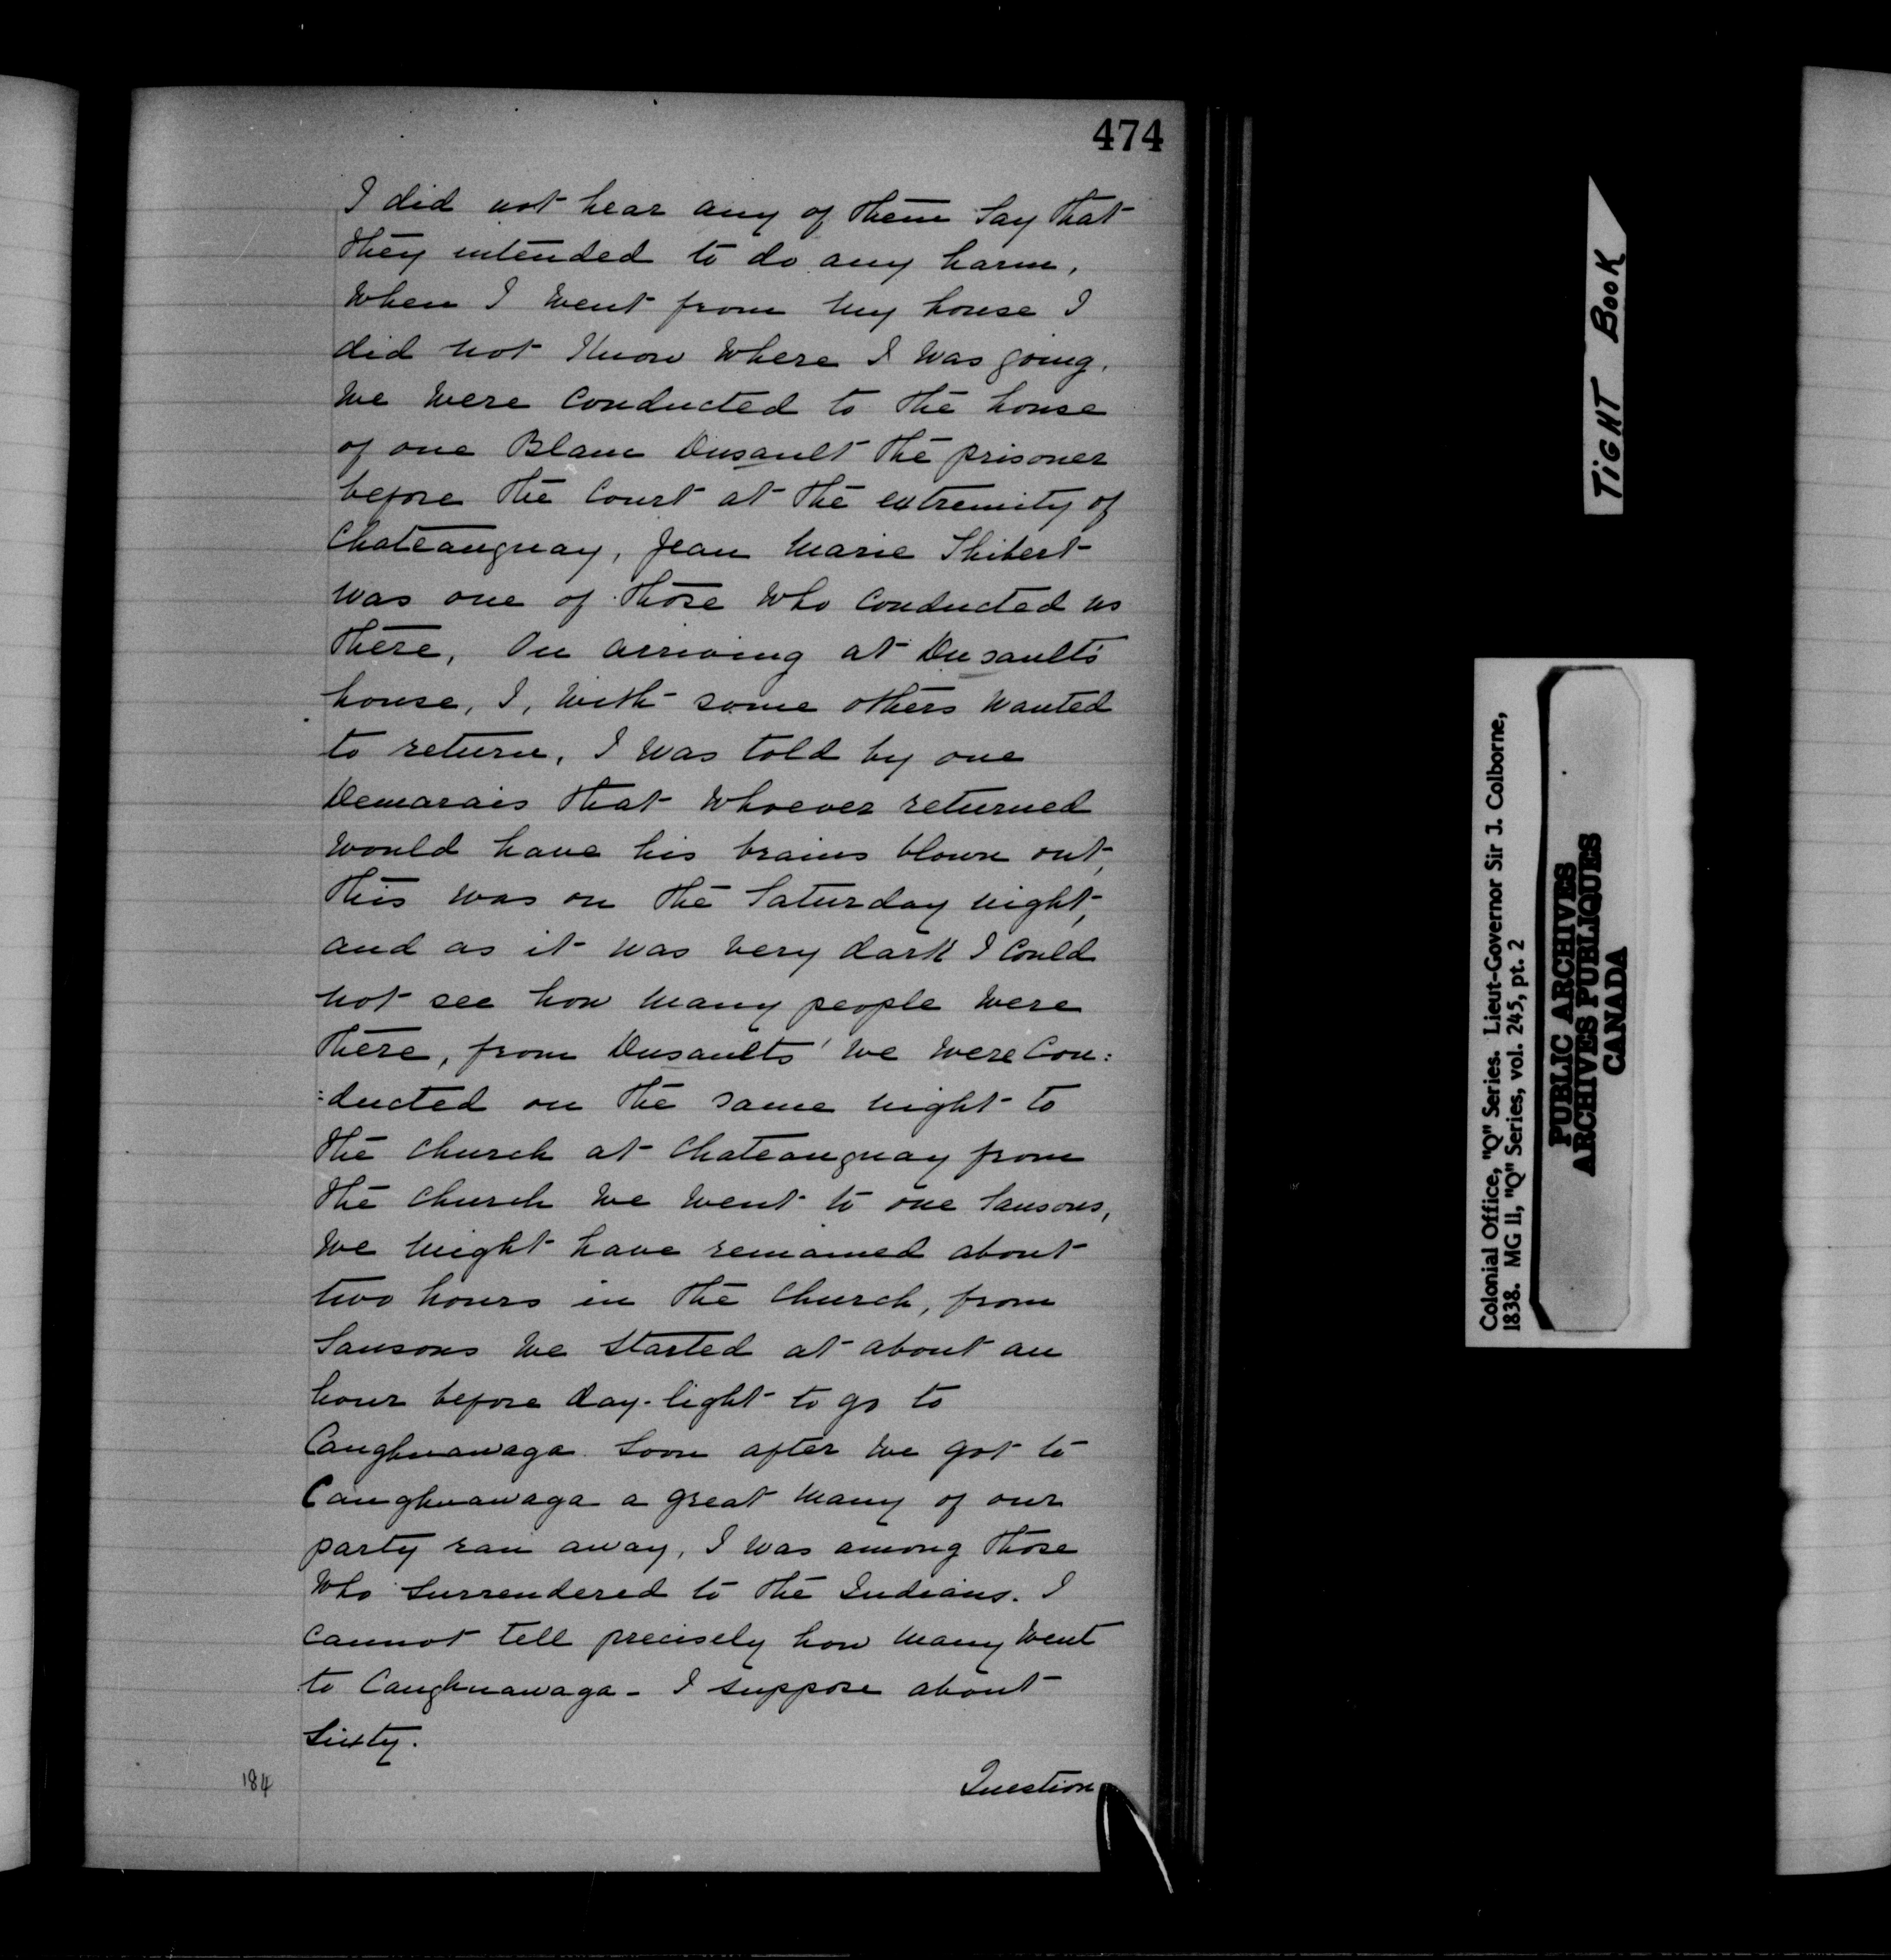 474
I did not hear any of them say that
they intended to do any harm,
when I went from my house I
did not know where I was going.
We were conducted to the house
of one Blanc Dusault the prisoner
before the Court at the extremity of
Chateauguay, Jean Marie Thibert
was one of those who conducted us
there, On arriving at Dusault's
house, I, with some others wanted
to return, I was told by one
Demarais that whoever returned
would have his brains blown out,
This was on the Saturday night,
and as it was very dark I could
not see how many people were
there, from Dusaults' we were Con:
:ducted on the same night to
the church at Chateauguay from
the church we went to one Sansons,
we might have remained about
two hours in the church, from
Sansons we started at about an
hour before day-light to go to
Caughnawaga. Soon after we got to
Caughnawaga a great many of our
party ran away, I was among those
who surrendered to the Indians. I
cannot tell precisely how many went
to Caughnawaga - I suppose about
Sixty.
184
Question
TIGHT BOOK
Colonial Office, "Q" Series. Lieut-Governor Sir J. Colborne,
1838. MG 11, "Q" Series, vol. 245, pt. 2
PUBLIC ARCHIVES
ARCHIVES PUBLIQUES
CANADA